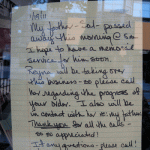 My father - Sal - passed
away this morning @ 5am
I hope to have a memorial
service for him soon.
will be taking over
this business - so please call
her regarding the progress of
your order. I also will be
in contact with her
Thank you for all the calls
appreciated!
any questions - please call!